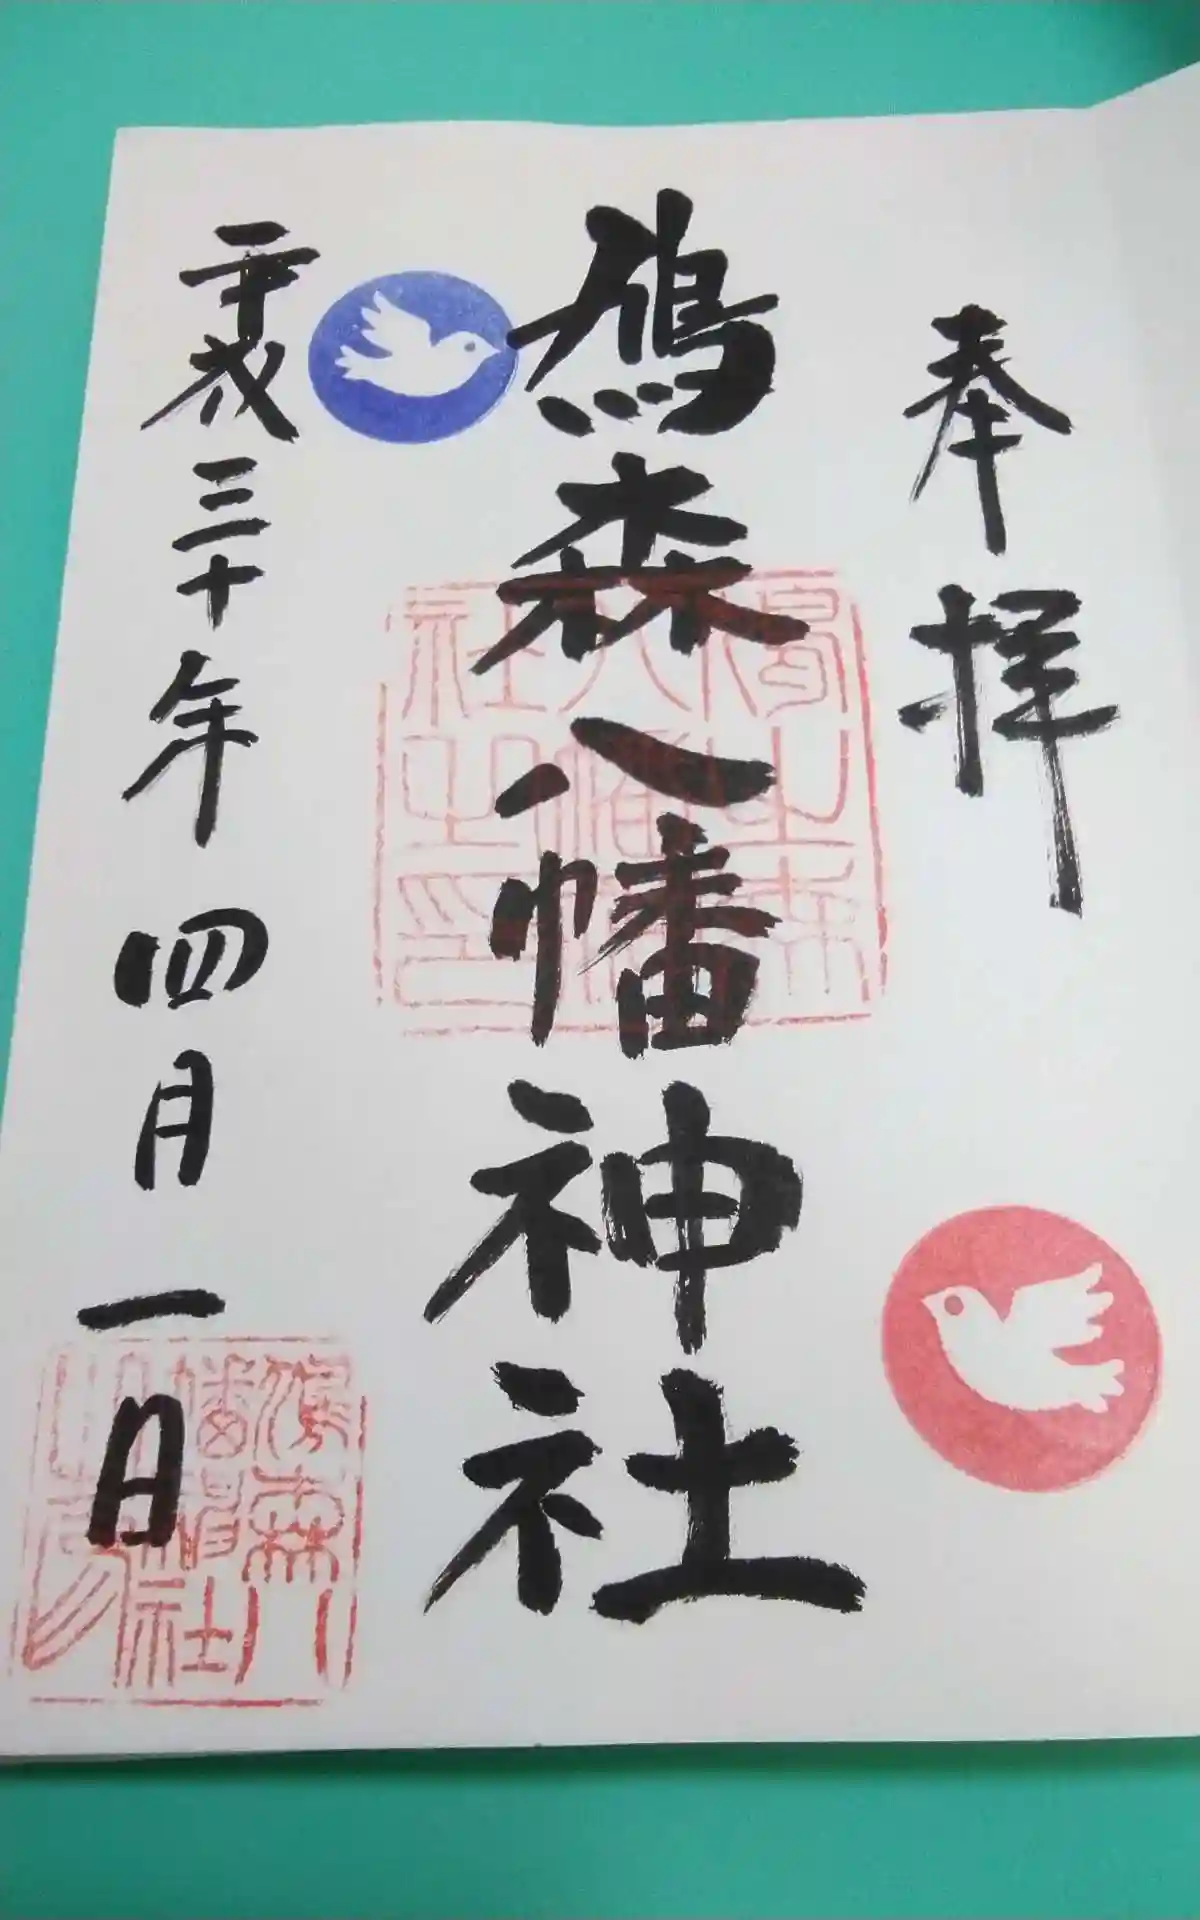 奉拝
鳩森八幡神社
鳩之森
八幡神
社之印
平成三十年四月一日
鳩森八
幡神社